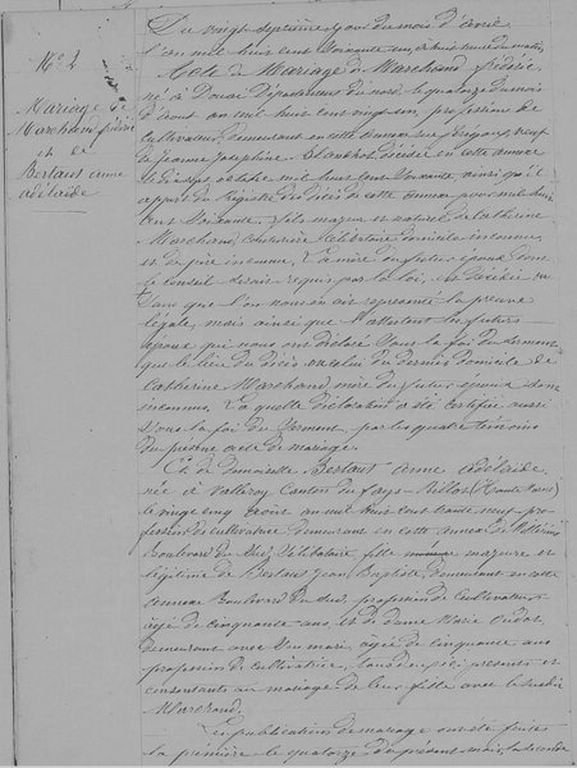 N° 2
Mariage de
Marchand frédéric
et de
Bertaut anne
adélaïde
Du vingt septième jour du mois d'avril
l'an mil huit cent soixante un, à huit heures du matin,
Acte de Mariage de Marchand frédéric,
né à Douai Département du nord, le quatorze du mois
d'Aout an mil huit cent vingt six, profession de
cultivateur, demeurant en cette annexe, veuf
de Jeanne Josephine Blanchot décédée en cette annexe
le dix sept octobre mil huit cent soixante, ainsi qu'il
appert du Régistre des décès de cette annexe pour mil huit
cent soixante. fils majeur et naturel de Catherine
Marchand, couturière célibataire domicile inconnu,
et de père inconnu. La mère du futur époux dont
le conseil serait requis par la loi, est décédée
sans que l'on nous en ait représenté la preuve
légale, mais ainsi que l'attestent les futurs
époux qui nous ont déclaré sous la foi du serment
que le lieu du décès et celui du dernier domicile de
Catherine Marchand, mère du futur époux sont
inconnus. La quelle déclaration a été certifiée aussi
sous la foi du serment, par les quatre témoins
du présent acte de mariage.
Et de demoiselle Bertaut anne adélaïde,
née à Valleroy Canton du fays-Billot (Haute Marne)
le vingt cinq mil huit cent trente neuf, pro-
fession de cultivatrice demeurant en cette annexe de
Boulevard du Sud, célibataire, fille majeure et
légitime de Bertaut Jean Baptiste, demeurant en cette
annexe Boulevard du Sud, profession de Cultivateur
âgé de cinquante ans, et de dame Marie Oudot,
demeurant avec son mari, âgée de cinquante ans
profession de cultivatrice, tous deux ici présents et
consentants au mariage de leur fille avec le susdit
Marchand.
Les publications de mariage ont été faites
la première le quatorze du présent mois, la seconde